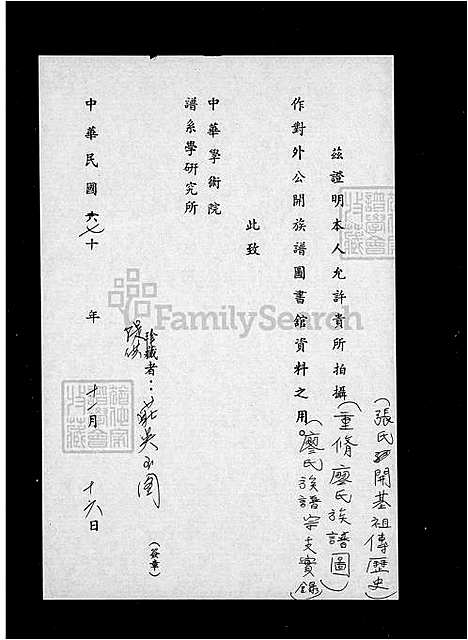 (張氏開基祖傳歷史)
茲證明本人允許貴所拍攝(重脩廖氏族譜圖)
作對外公開族譜圖書館資料之用。(廖氏族譜宗支實錄)
此致
中華學術院
譜系學研究所
提供
珍藏者：莊吳玉圖
(簽章)
中華民國六七十年十一月十六日
FamilySearch